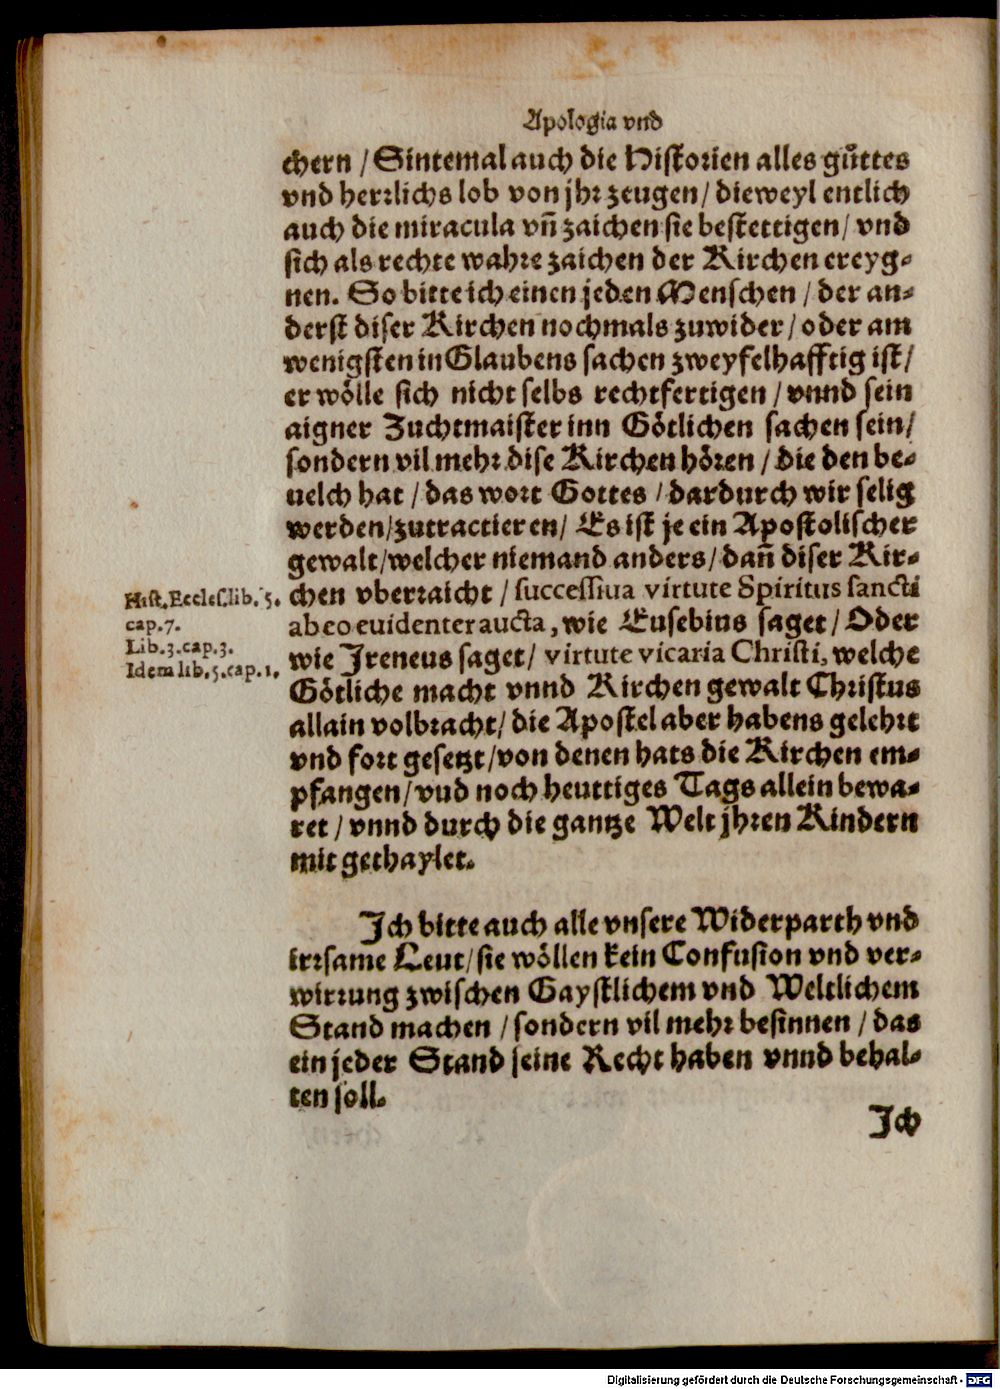 Apologia vnd
chern / Sintemal auch die Historien alles gůttes
vnd herrlichs lob von jhr zeugen / dieweyl entlich
auch die miracula vñ zaichen sie bestettigen / vnd
sich als rechte wahre zaichen der Kirchen ereyg-
nen. So bitte ich einen jeden Menschen / der an-
derst diser Kirchen nochmals zuwider / oder am
wenigsten in Glaubens sachen zweyfelhafftig ist /
er wölle sich nicht selbs rechtfertigen / vnnd sein
aigner Zuchtmaister inn Götlichen sachen sein /
sondern vil mehr dise Kirchen hören / die den be-
uelch hat / das wort Gottes / dardurch wir selig
werden / zutractieren / Es ist je ein Apostolischer
gewalt / welcher niemand anders / dañ diser Kir-
chen vberraicht / successiua virtute Spiritus sancti
ab eo euidenter aucta, wie Eusebius saget / Oder
wie Ireneus saget / virtute vicaria Christi, welche
Götliche macht vnnd Kirchen gewalt Christus
allain volbracht / die Apostel aber habens gelehrt
vnd fort gesetzt / von denen hats die Kirchen em-
pfangen / vud noch heuttiges Tags allein bewa-
ret / vnnd durch die gantze Welt jhren Kindern
mit gethaylet.
Hist. Eccles. lib. 5.
cap. 7.
Lib. 3. cap. 3.
Idem lib. 5. cap. 1.
Ich bitte auch alle vnsere Widerparth vnd
irrsame Leut / sie wöllen kein Confusion vnd ver-
wirrung zwischen Gaystlichem vnd Weltlichem
Stand machen / sondern vil mehr besinnen / das
ein jeder Stand seine Recht haben vnnd behal-
ten soll.
Ich
Digitalisierung gefördert durch die Deutsche Forschungsgemeinschaft - DFG